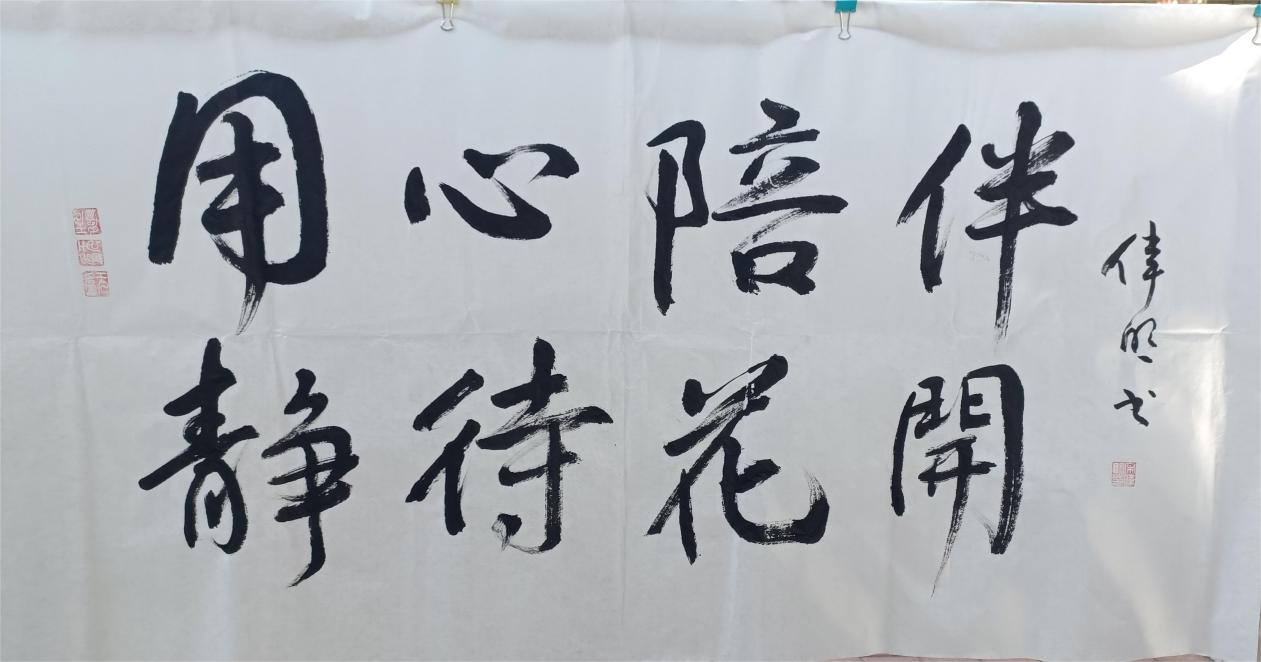 用心陪伴
静待花開
伟明书